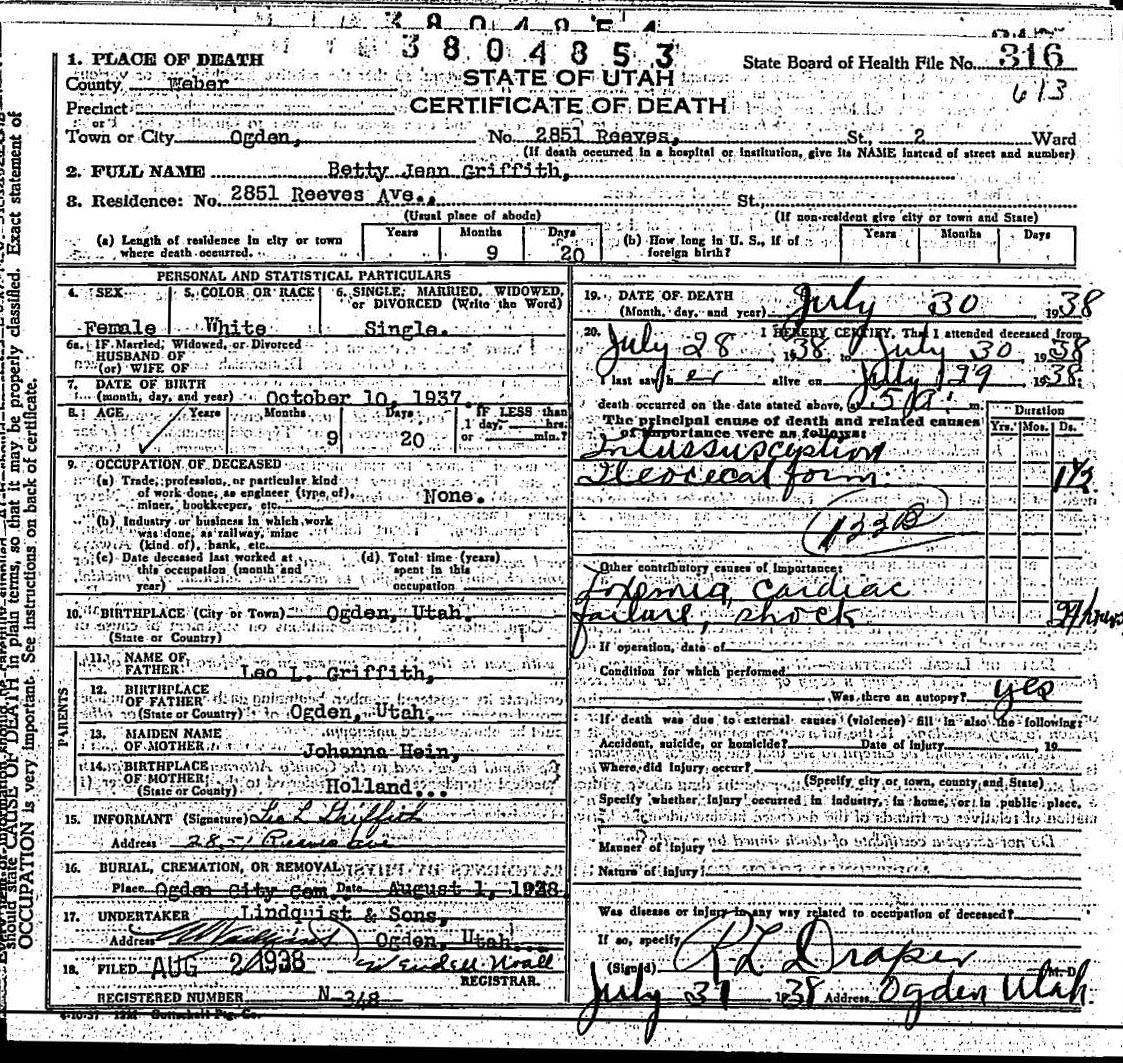 3804853
316
State Board of Health File No.
613
1. PLACE OF DEATH
STATE OF UTAH
County Weber
CERTIFICATE OF DEATH
Precinct
or
Town or City Ogden, No. 2851 Reeves, St., 2 Ward
(If death occurred in a hospital or institution, give its NAME instead of street and number)
2. FULL NAME Betty Jean Griffith,
3. Residence: No. 2851 Reeves Ave., St.,
(Usual place of abode) (If non-resident give city or town and State)
(a) Length of residence in city or town where death occurred. Years Months 9 Days 20
(b) How long in U. S., if of foreign birth? Years Months Days
PERSONAL AND STATISTICAL PARTICULARS
4. SEX 5. COLOR OR RACE 6. SINGLE, MARRIED, WIDOWED,
or DIVORCED (Write the Word)
Female White Single.
6a. IF Married, Widowed, or Divorced
HUSBAND OF
(or) WIFE OF
7. DATE OF BIRTH
(month, day, and year) October 10, 1937.
8. AGE Years Months Days IF LESS than
1 day, hrs.
9 20 or min.?
9. OCCUPATION OF DECEASED
(a) Trade, profession, or particular kind
of work done, as engineer (type of), None.
miner, bookkeeper, etc.
(b) Industry or business in which work
was done, as railway, mine
(kind of), bank, etc.
(c) Date deceased last worked at (d) Total time (years)
this occupation (month and spent in this
year) occupation
10. BIRTHPLACE (City or Town) Ogden, Utah.
(State or Country)
PARENTS
11. NAME OF
FATHER: Leo L. Griffith,
12. BIRTHPLACE
OF FATHER
(State or Country) Ogden, Utah.
13. MAIDEN NAME
OF MOTHER Johanna Hein,
14. BIRTHPLACE
OF MOTHER
(State or County) Holland...
15. INFORMANT (Signature) Leo L Griffith
Address 2851 Reeves Ave
16. BURIAL, CREMATION, OR REMOVAL
Place Ogden City Cem. Date August 1, 1938.
17. UNDERTAKER Lindquist & Sons,
Address Ogden, Utah...
18. FILED AUG 2 1938 Wendell Noall
REGISTRAR.
REGISTERED NUMBER N-348
19. DATE OF DEATH
(Month, day, and year) July 30 1938
20. I HEREBY CERTIFY, That I attended deceased from
July 28, 1938, to July 30, 1938
I last saw her alive on July 29 1938;
death occurred on the date stated above, m.
The principal cause of death and related causes
of importance were as follows:
Duration
Yrs. Mos. Ds.
Intussusception
Ileocecal form.
Other contributory causes of importance:
Toxemia, Cardiac
failure, shock
If operation, date of
Condition for which performed
Was there an autopsy? yes
If death was due to external causes (violence) fill in also the following:
Accident, suicide, or homicide? Date of injury 19
Where did injury occur?
(Specify city or town, county and State)
Specify whether injury occurred in industry, in home, or in public place.
Manner of injury
Nature of injury
Was disease or injury in any way related to occupation of deceased?
If so, specify
(Signed) R L Draper M. D.
July 31 1938 Address Ogden Utah
should state CAUSE OF DEATH in plain terms, so that it may be properly classified. Exact statement of
OCCUPATION is very important. See instructions on back of certificate.